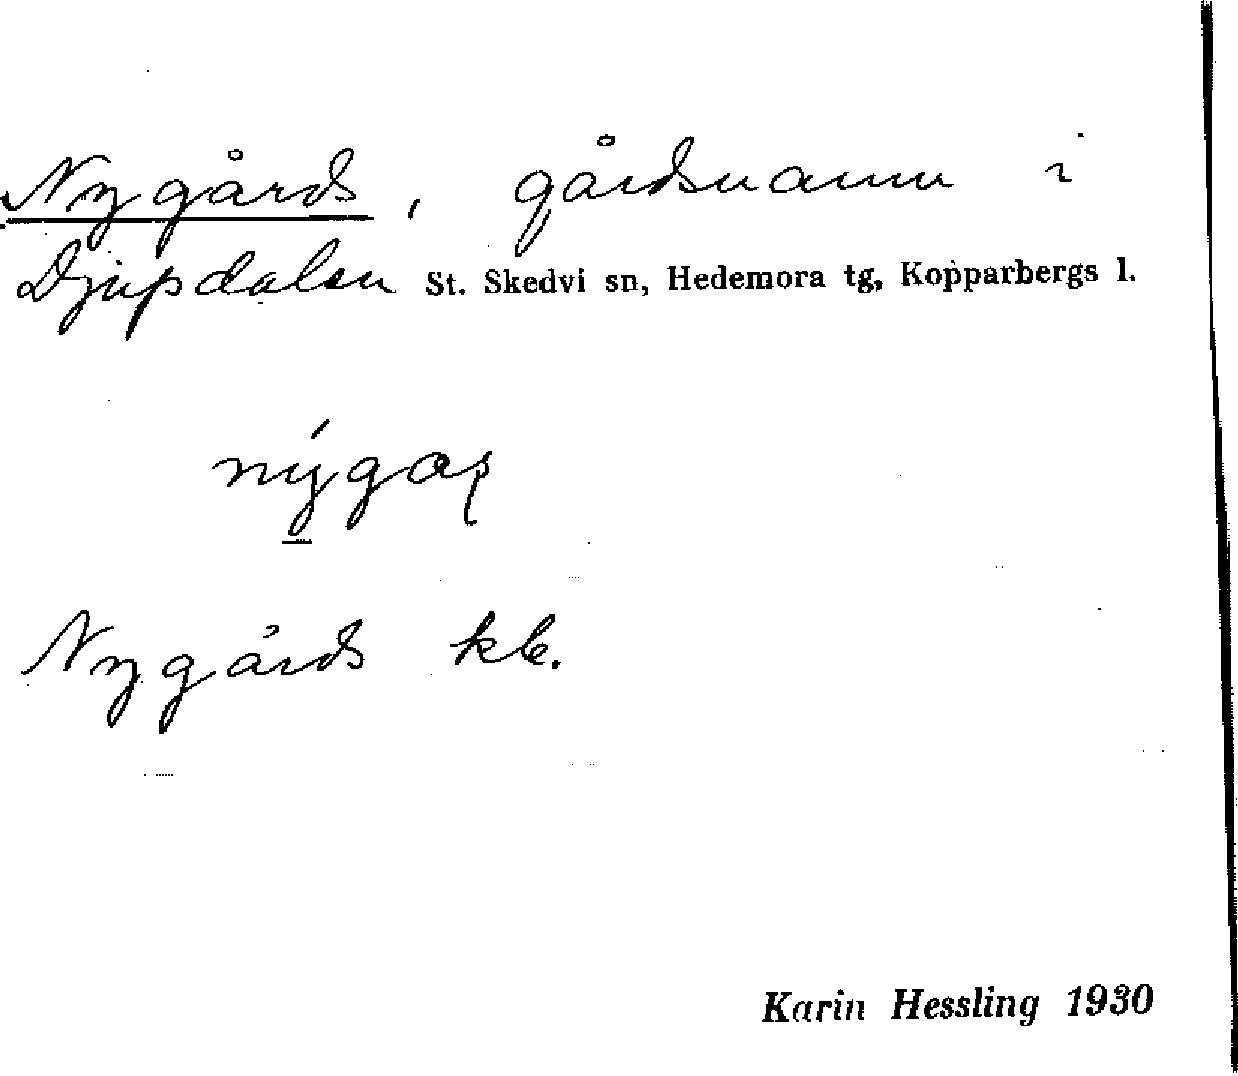 Nygårds, gårdsnamn i
Djupdalen St. Skedvi sn, Hedemora tg, Kopparbergs l.
Nygårds kb.
Karin Hessling 1930